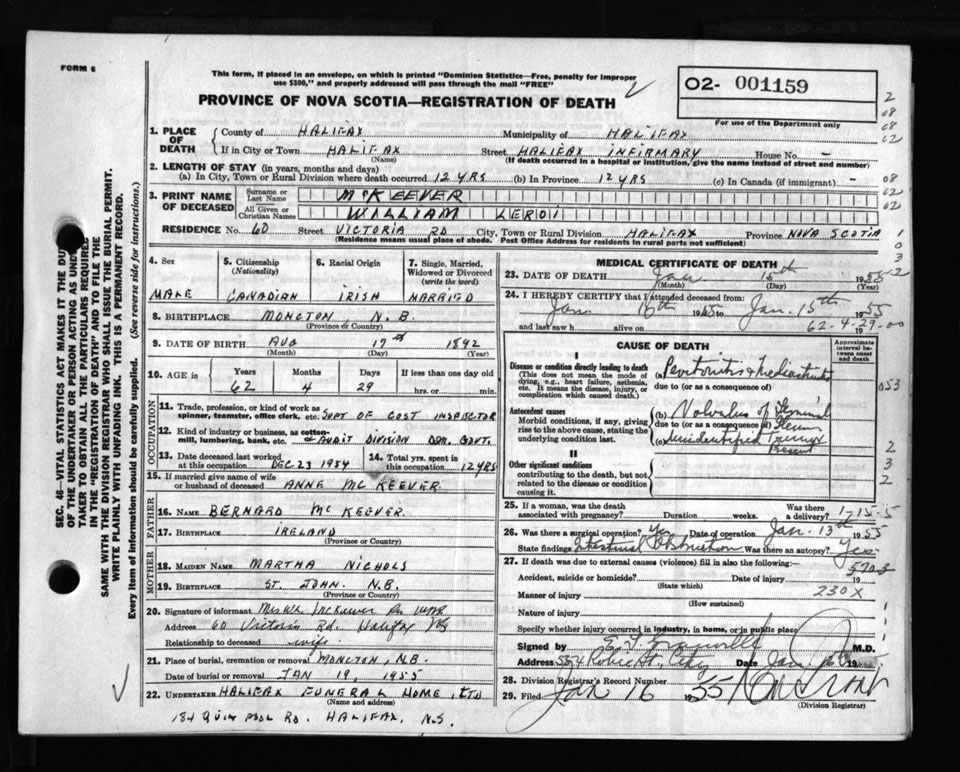 FORM 6
This form, if placed in an envelope, on which is printed "Dominion Statistics—Free, penalty for improper
use $300," and properly addressed will pass through the mail "FREE"
O2- 001159
For use of the Department only
PROVINCE OF NOVA SCOTIA—REGISTRATION OF DEATH
SEC. 46—VITAL STATISTICS ACT MAKES IT THE DUTY
OF THE UNDERTAKER OR PERSON ACTING AS UNDER-
TAKER TO OBTAIN ALL THE PARTICULARS REQUIRED
IN THE "REGISTRATION OF DEATH" AND TO FILE THE
SAME WITH THE DIVISION REGISTRAR WHO SHALL ISSUE THE BURIAL PERMIT.
WRITE PLAINLY WITH UNFADING INK. THIS IS A PERMANENT RECORD.
Every item of information should be carefully supplied. (See reverse side for instructions.)
1. PLACE OF DEATH
County of HALIFAX Municipality of HALIFAX
If in City or Town HALIFAX Street HALIFAX INFIRMARY House No. -
(Name) (If death occurred in a hospital or institution, give the name instead of street and number)
2. LENGTH OF STAY (in years, months and days)
(a) In City, Town or Rural Division where death occurred 12 YRS (b) In Province 12 YRS (c) In Canada (if immigrant) -
3. PRINT NAME OF DECEASED
Surname or Last Name MCKEEVER
All Given or Christian Names WILLIAM LEROI
RESIDENCE No. 60 Street VICTORIA RD City, Town or Rural Division HALIFAX Province NOVA SCOTIA
(Residence means usual place of abode. Post Office Address for residents in rural parts not sufficient)
4. Sex MALE
5. Citizenship (Nationality) CANADIAN
6. Racial Origin IRISH
7. Single, Married, Widowed or Divorced (write the word) MARRIED
8. BIRTHPLACE MONCTON, N.B.
(Province or Country)
9. DATE OF BIRTH AUG 17 1892
(Month) (Day) (Year)
10. AGE in Years Months Days If less than one day old
62 4 29 hrs. or min.
OCCUPATION
11. Trade, profession, or kind of work as
spinner, teamster, office clerk, etc. SUPT OF COST INSPECTOR
12. Kind of industry or business, as cotton-
mill, lumbering, bank, etc. & AUDIT DIVISION DOM. GOVT.
13. Date deceased last worked
at this occupation DEC 23 1954
14. Total yrs. spent in
this occupation 12 YRS
15. If married give name of wife
or husband of deceased ANNE MCKEEVER
FATHER
16. NAME BERNARD MCKEEVER
17. BIRTHPLACE IRELAND
(Province or Country)
MOTHER
18. MAIDEN NAME MARTHA NICHOLS
19. BIRTHPLACE ST. JOHN. N.B.
(Province or Country)
20. Signature of informant McKeever
Address 60 Victoria Rd. Halifax NS
Relationship to deceased wife
21. Place of burial, cremation or removal MONCTON, N.B.
Date of burial or removal JAN 19, 1955
22. UNDERTAKER HALIFAX FUNERAL HOME LTD
(Name and address)
184 QUINPOOL RD. HALIFAX, N.S.
MEDICAL CERTIFICATE OF DEATH
23. DATE OF DEATH Jan 15th 1955
(Month) (Day) (Year)
24. I HEREBY CERTIFY that I attended deceased from:
Jan 1955 to Jan. 15th 1955
and last saw h alive on 19
62-4-29-00
CAUSE OF DEATH
Approximate interval between onset and death
I
Disease or condition directly leading to death
(This does not mean the mode of dying, e.g., heart failure, asthenia, etc. It means the disease, injury, or complication which caused death.)
(a) Peritonitis & Mediastinitis
due to (or as a consequence of)
053
Antecedent causes
Morbid conditions, if any, giving rise to the above cause, stating the underlying condition last.
(b) Volvulus of Terminal Ileum
due to (or as a consequence of)
(c) unidentified present
II
Other significant conditions
contributing to the death, but not related to the disease or condition causing it.
25. If a woman, was the death
associated with pregnancy? Duration weeks. Was there a delivery?
1-15-5
26. Was there a surgical operation? Yes Date of operation Jan. 13th 1955
State findings Intestinal Obstruction Was there an autopsy? Yes
27. If death was due to external causes (violence) fill in also the following:—
5703
Accident, suicide or homicide? Date of injury 19
(State which)
230X
Manner of injury
(How sustained)
Nature of injury
Specify whether injury occurred in industry, in home, or in public place
Signed by M.D.
Address Date Jan. 16
28. Division Registrar's Record Number
29. Filed Jan 16 1955
(Division Registrar)